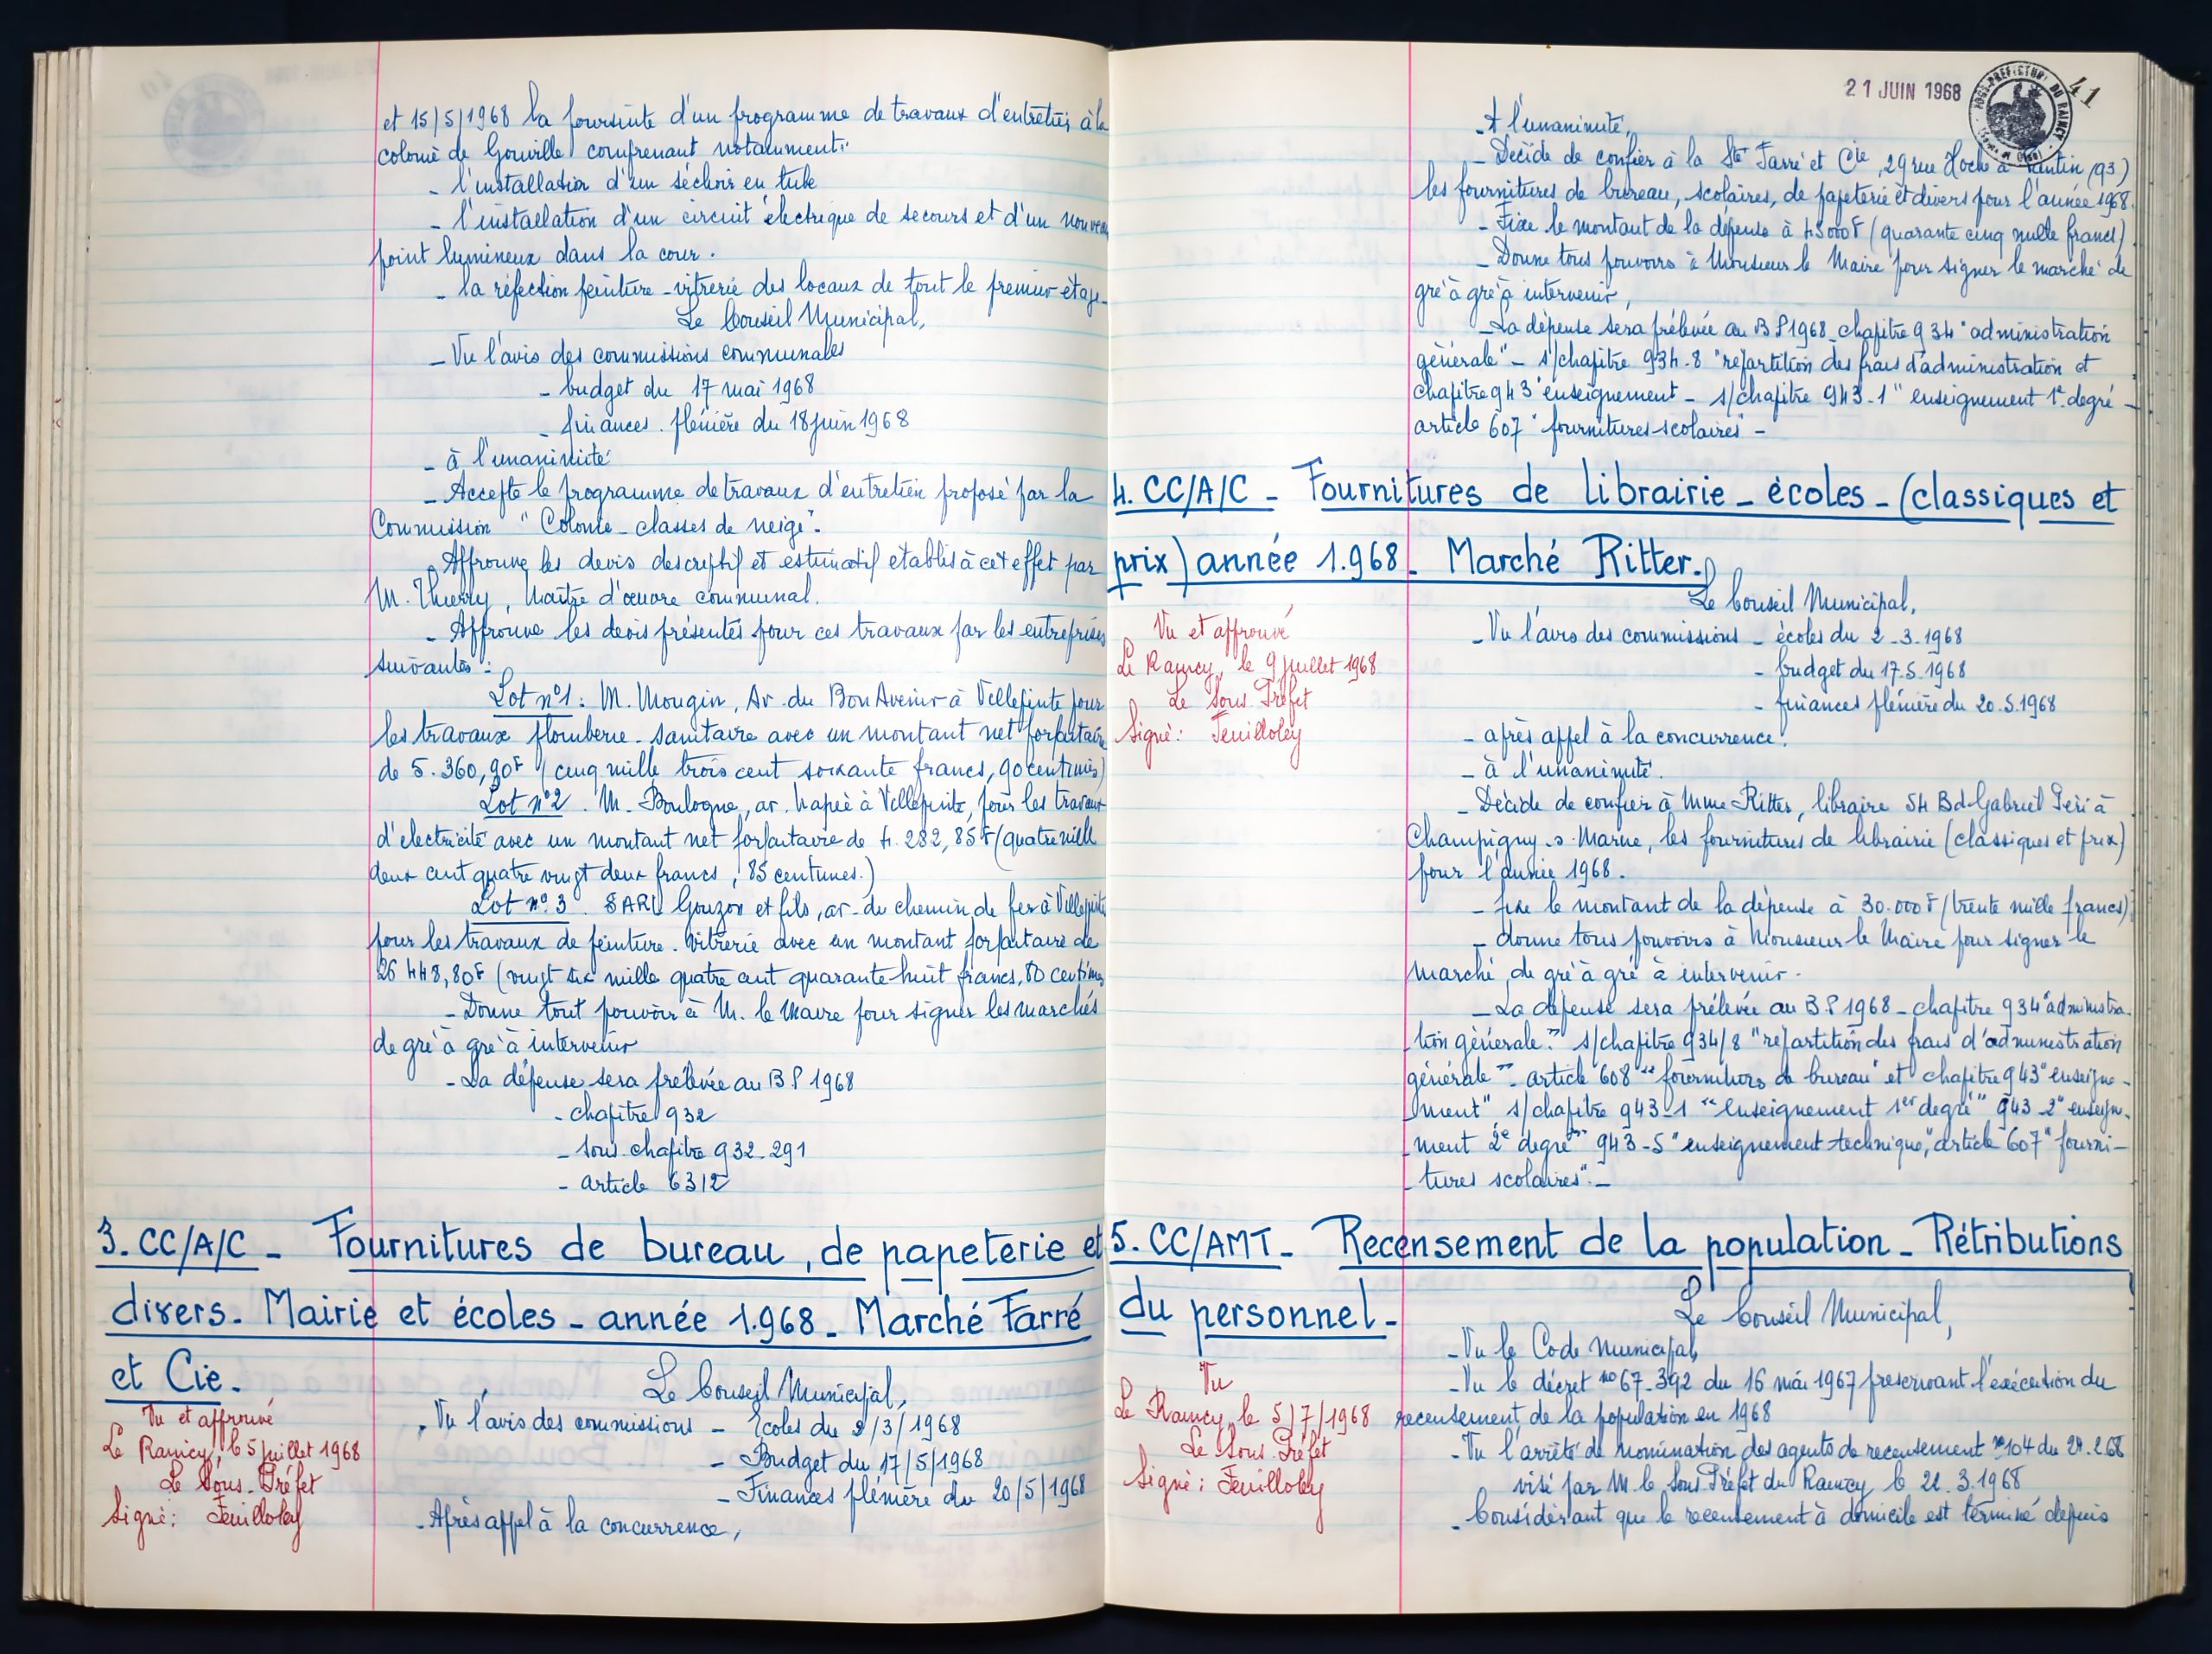 et 15/5/1968 la poursuite d'un programme de travaux d'entretien à la
colonie de Gouville comprenant notamment:
- l'installation d'un séchoir en tube
- l'installation d'un circuit électrique de secours et d'un nouveau
point lumineux dans la cour.
- la réfection peinture - vitrerie des locaux de tout le premier étage.
Le Conseil Municipal,
- Vu l'avis des commissions communales
- budget du 17 mai 1968
- finances plénière du 18 juin 1968
- à l'unanimité
- Accepte le programme de travaux d'entretien proposé par la
Commission "Colonie - classes de neige".
Approuve les devis descriptif et estimatif établis à cet effet par
M. Thierry, Maître d'œuvre communal.
- Approuve les devis présentés pour ces travaux par les entreprises
suivantes :
Lot n°1 : M. Mougin, Av. du Bon Avenir à Villepinte pour
les travaux plomberie - sanitaire avec un montant net forfaitaire
de 5.360,90F (cinq mille trois cent soixante francs, 90 centimes)
Lot n°2. M. Boulogne, av. à Villepinte, pour les travaux
d'électricité avec un montant net forfaitaire de 4.282,85F (quatre mille
deux cent quatre vingt deux francs, 85 centimes.)
Lot n° 3. SARL Gouzon et fils, av. du chemin de fer à Villepinte
pour les travaux de peinture. vitrerie avec un montant forfaitaire de
26 448,80F (vingt six mille quatre cent quarante huit francs, 80 centimes
- Donne tout pouvoir à M. le Maire pour signer les marchés
de gré à gré à intervenir
- La dépense sera prélevée au B P 1968
- chapitre 932
- sous-chapitre 932-291
- article 6312
3. CC/A/C - Fournitures de bureau, de papeterie et
divers. Mairie et écoles - année 1.968 - Marché Farré
et Cie.
Vu et approuvé
Le Raincy, le 5 juillet 1968
Le Sous-Préfet
Signé : Feuilloley
Le Conseil Municipal,
- Vu l'avis des commissions - Ecoles du 2/3/1968
- Budget du 17/5/1968
- Finances plénière du 20/5/1968
- Après appel à la concurrence,
21 JUIN 1968
SOUS-PREFECTURE DU RAINCY
41
- A l'unanimité,
- Décide de confier à la Sté Farré et Cie, 29 rue Hoche à Pantin (93)
les fournitures de bureau, scolaires, de papeterie et divers pour l'année 1968.
- Fixe le montant de la dépense à 45000F (quarante cinq mille francs)
- Donne tous pouvoirs à Monsieur le Maire pour signer le marché de
gré à gré à intervenir,
- La dépense sera prélevée au B P 1968 - chapitre 934 "administration
générale" - s/chapitre 934-8 "répartition des frais d'administration et
chapitre 943 "enseignement - s/chapitre 943-1 "enseignement 1er degré -
article 607 "fournitures scolaires" -
4. CC/A/C - Fournitures de librairie - écoles - (classiques et
prix) année 1.968 - Marché Ritter.
Vu et approuvé
Le Raincy, le 9 juillet 1968
Le Sous Préfet
Signé : Feuilloley
Le Conseil Municipal,
- Vu l'avis des commissions - écoles du 2-3-1968
- budget du 17.5.1968
- finances plénière du 20.5.1968
- après appel à la concurrence.
- à l'unanimité.
- Décide de confier à Mme Ritter, libraire 54 Bd Gabriel Péri à
Champigny s. Marne, les fournitures de librairie (classiques et prix)
pour l'année 1968.
- fixe le montant de la dépense à 30.000F (trente mille francs)
- donne tous pouvoirs à Monsieur le Maire pour signer le
marché de gré à gré à intervenir.
- La dépense sera prélevée au B.P 1968 - chapitre 934 "administra-
tion générale" s/chapitre 934/8 "répartition des frais d'administration
générale" - article 608 "fournitures de bureau" et chapitre 943 "enseigne-
ment" s/chapitre 943-1 "enseignement 1er degré" 943-2 "enseigne-
ment 2e degré" 943-5 "enseignement technique", article 607 "fourni-
tures scolaires" -
5. CC/AMT - Recensement de la population - Rétributions
du personnel -
Vu
Le Raincy, le 5/7/1968
Le Sous Préfet
Signé : Feuilloley
Le Conseil Municipal,
- Vu le Code Municipal,
- Vu le décret n° 67-392 du 16 mai 1967 prescrivant l'exécution du
recensement de la population en 1968
- Vu l'arrêté de nomination des agents de recensement n° 104 du
visé par M. le Sous Préfet du Raincy le 22.3.1968
- Considérant que le recensement à domicile est terminé depuis